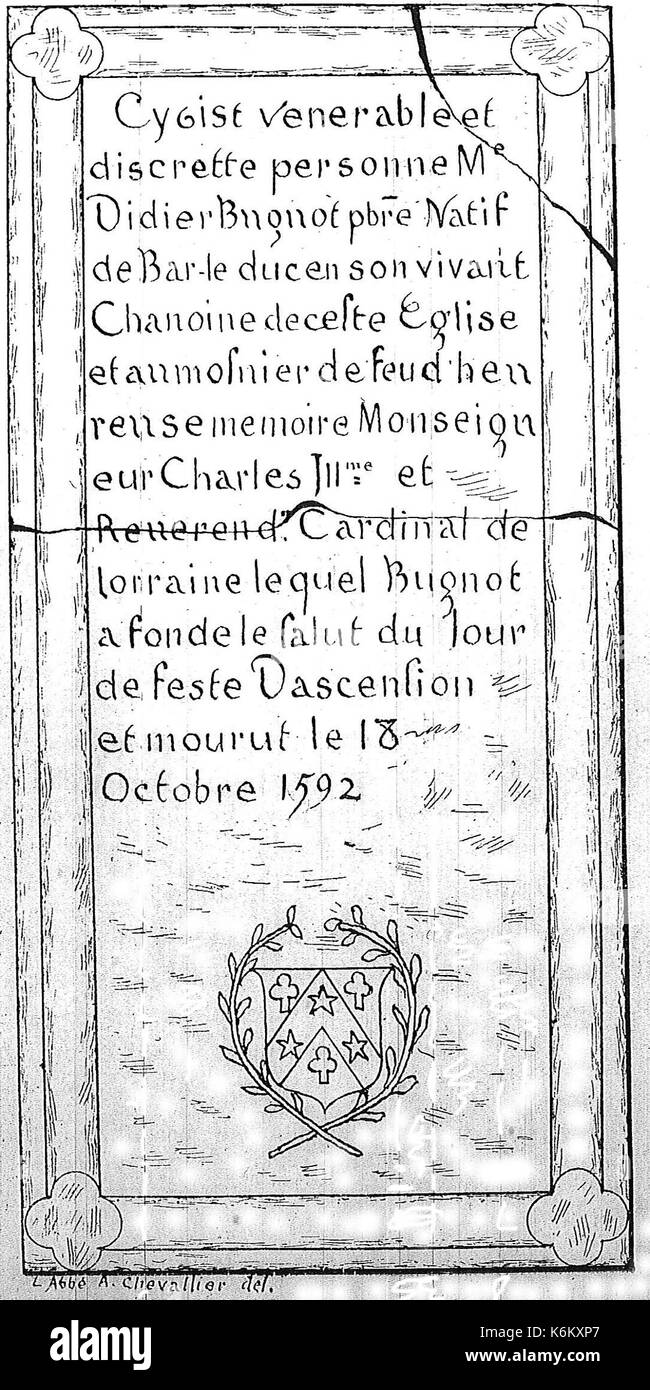 Cy Gist venerable et
discrette personne Me
Didier Bugnot pbr̄e Natif
de Bar-le duc en son vivant
Chanoine de ceſte Eglise
et aumoſnier de feu d'heu
reuse memoire Monseign
eur Charles IIIme et
Reuerendme Cardinal de
lorraine lequel Bugnot
a fonde le ſalut du Jour
de feste Dascenſion
et mourut le 18
Octobre 1592
L'Abbé A. Chevallier del.
a
alamy stock photo
K6KXP7
www.alamy.com